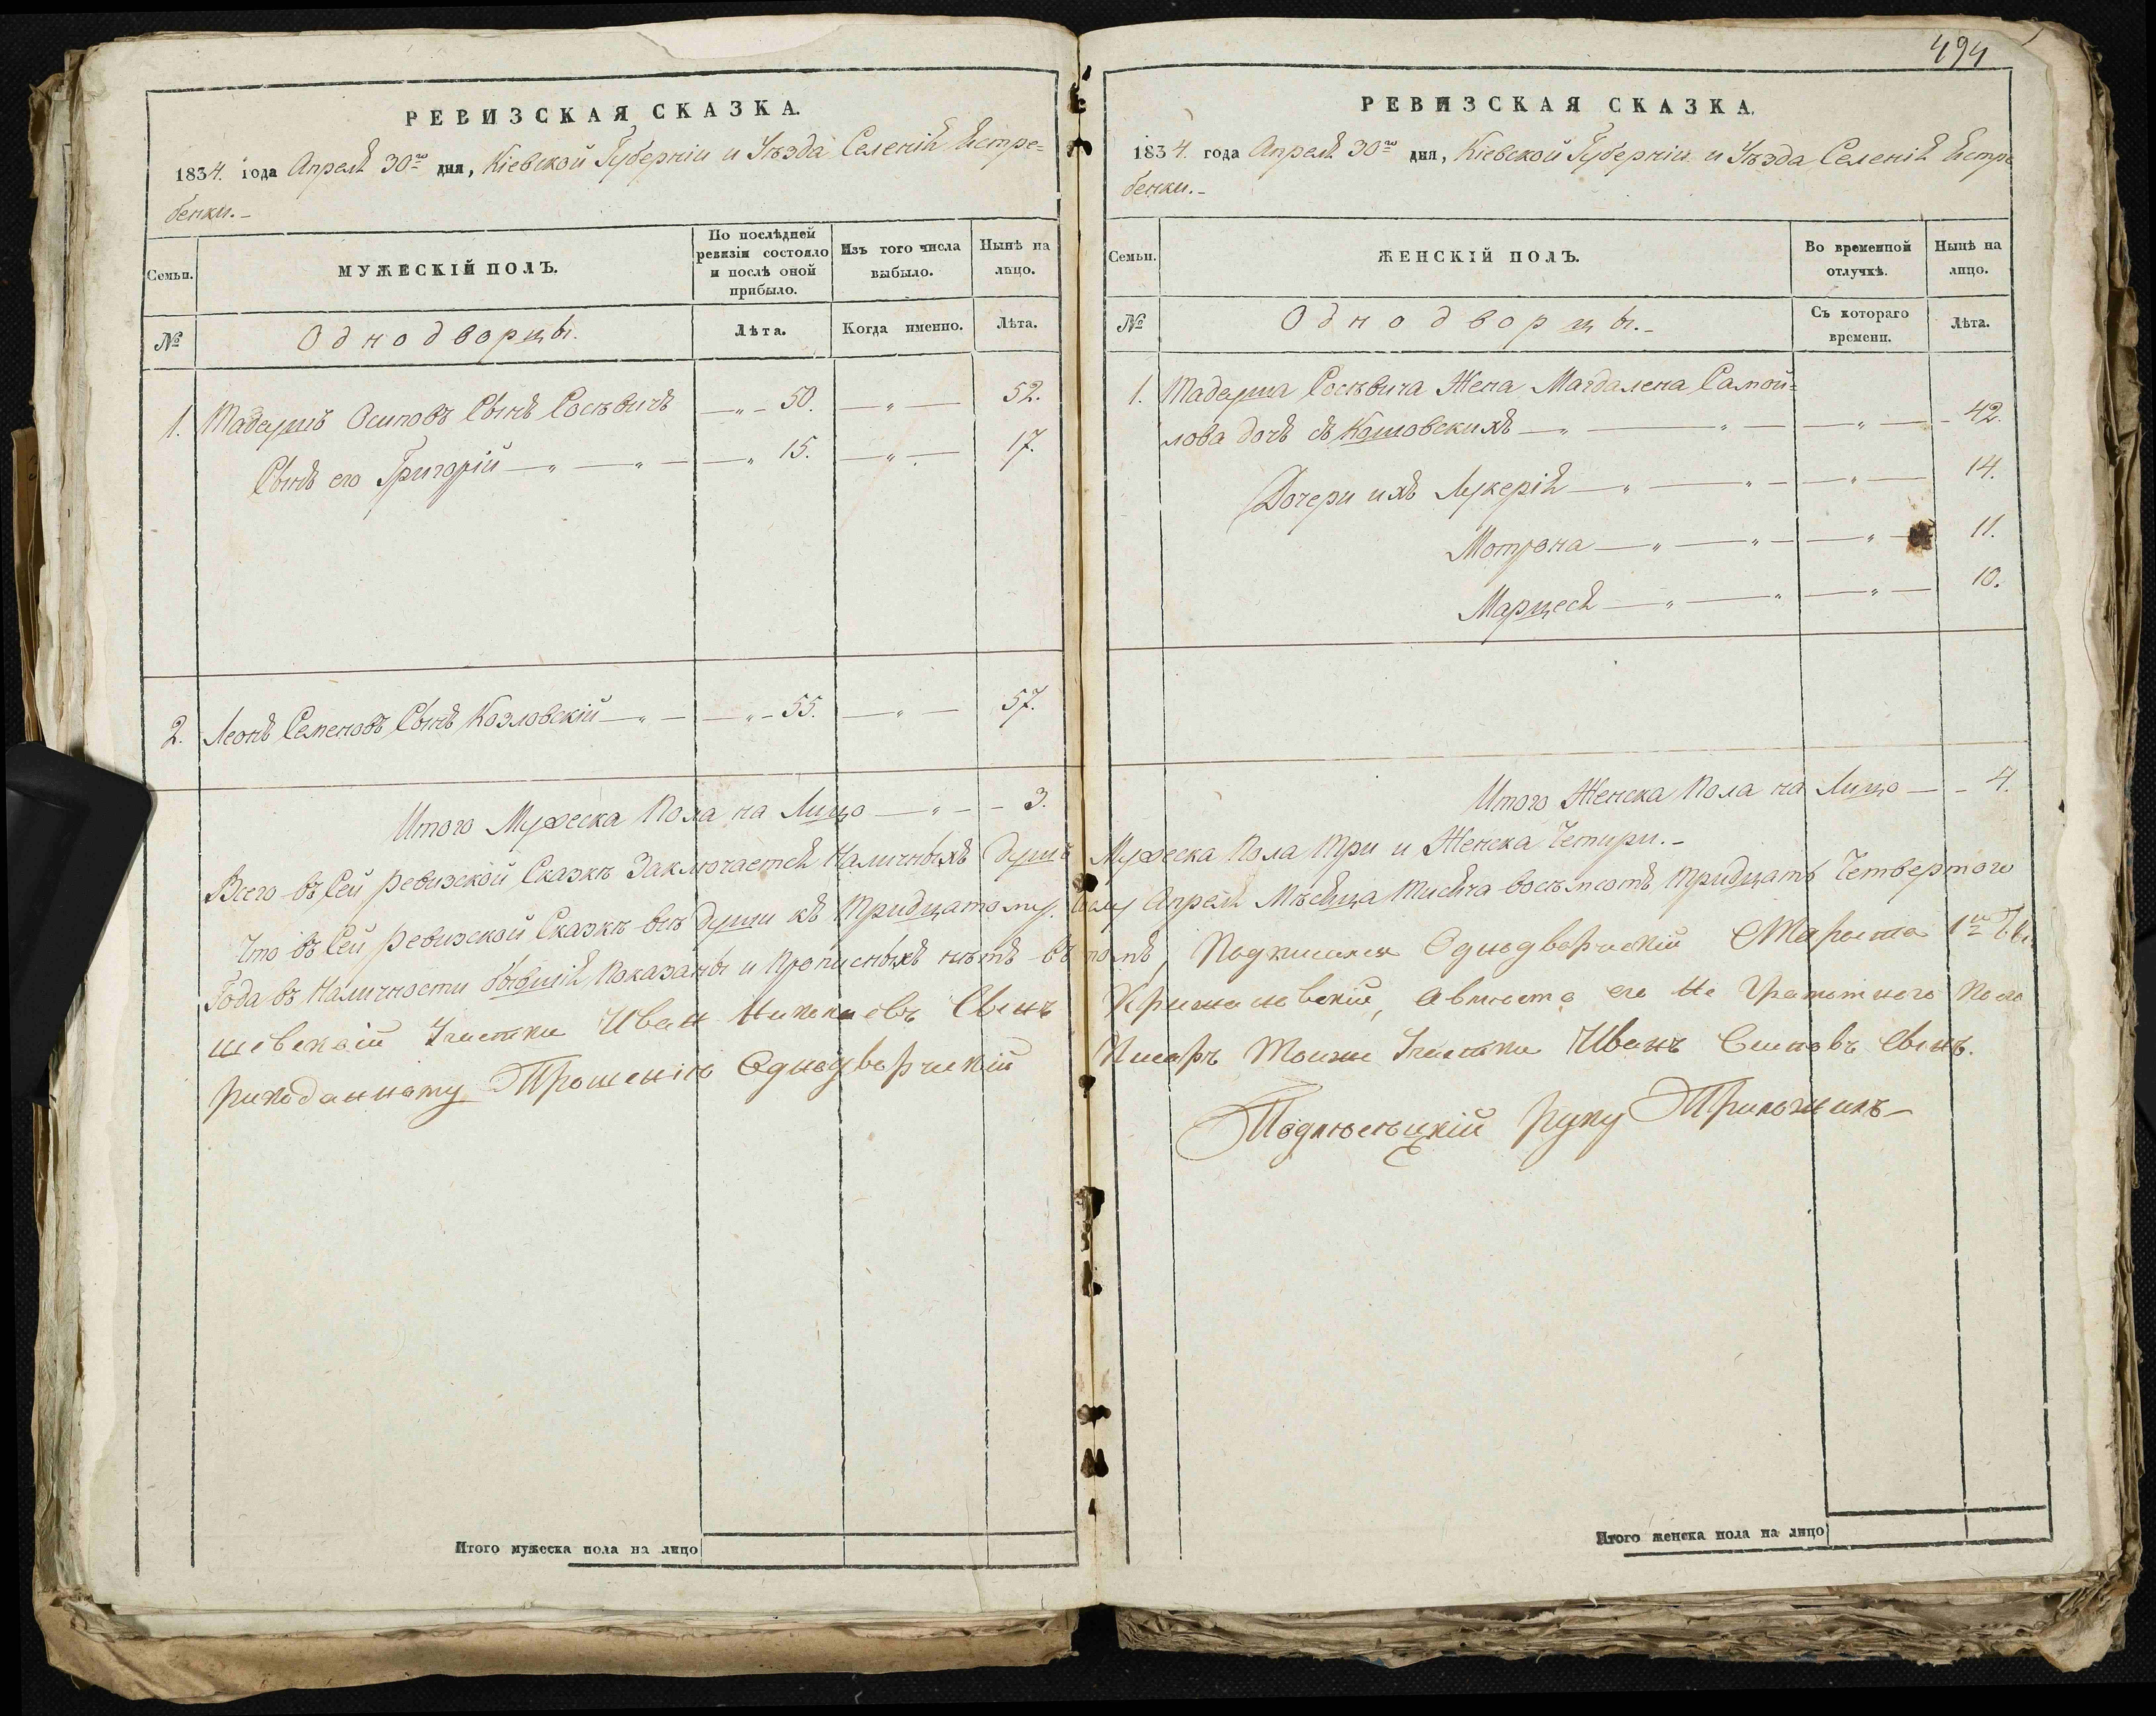 РЕВИЗСКАЯ СКАЗКА.
1834. года Апреля 30го дня, Кіевской Губерніи и Уѣзда Селенія Ястре=
бенки.-
Семьи.
МУЖЕСКІЙ ПОЛЪ.
По послѣдней
ревизіи состояло
и послѣ оной
прибыло.
Изъ того числа
выбыло.
Нынѣ на
лицо.
№
Однодворцы.
Лѣта.
Когда именно.
Лѣта.
1. Тадеушъ Осиповъ Сынъ Сосѣвичъ — „ - 50. — „ — 52.
Сынъ его Григорій — „ — „ — — „ 15. — „ — 17.
2. Леонъ Семеновъ Сынъ Козловскій — „ — — „ - 55. — „ — 57.
Итого Мужеска Пола на Лицо — „ - - 3.
Всего въ Сей Ревизской Сказкѣ Заключается Наличныхъ Душъ
Что въ Сей Ревизской Сказкѣ всѣ Души къ Тридцатому Числу
Года въ Наличности бывшія показаны и прописныхъ нѣтъ въ
шевскій Участка Иван Сынъ
рукоданному Прошенію Однодворческій
494
РЕВИЗСКАЯ СКАЗКА.
1834. года Апреля 30го дня, Кіевской Губерніи и Уѣзда Селенія Ястре
бенки.-
Семьи.
ЖЕНСКІЙ ПОЛЪ.
Во временной
отлучкѣ.
Нынѣ на
лицо.
№
Однодворцы.-
Съ котораго
времени.
Лѣта.
1. Тадеуша Сосѣвича Жена Магдалена Самой=
лова дочь съ Кошовскихъ — „ — „ — — „ — - 42.
Дочери ихъ Лукерія — „ — „ — — „ — 14.
Мотрона — „ — „ — — „ — 11.
Марцеся — „ — „ — „ — 10.
Итого Женска Пола на Лицо — - 4.
Мужеска Пола Три и Женска Четири.-
Апреля Мѣсяца Тисяча восѣмсотъ Тридцатъ Четвертого
томъ, Подписался Однодворческій Староста 1го
авмѣсто его Не Грамотного По его
Писаръ Тоижъ Участки Иванъ Сынъ.
Руку Приложилъ
Итого мужеска пола на лицо
Итого женска пола на лицо